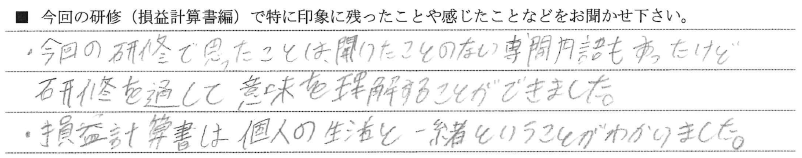 ■ 今回の研修（損益計算書編）で特に印象に残ったことや感じたことなどをお聞かせ下さい。
・今回の研修で思ったことは、聞けたことのない専門用語もあったけど
研修を通して意味を理解することができました。
・損益計算書は個人の生活と一緒ということがわかりました。